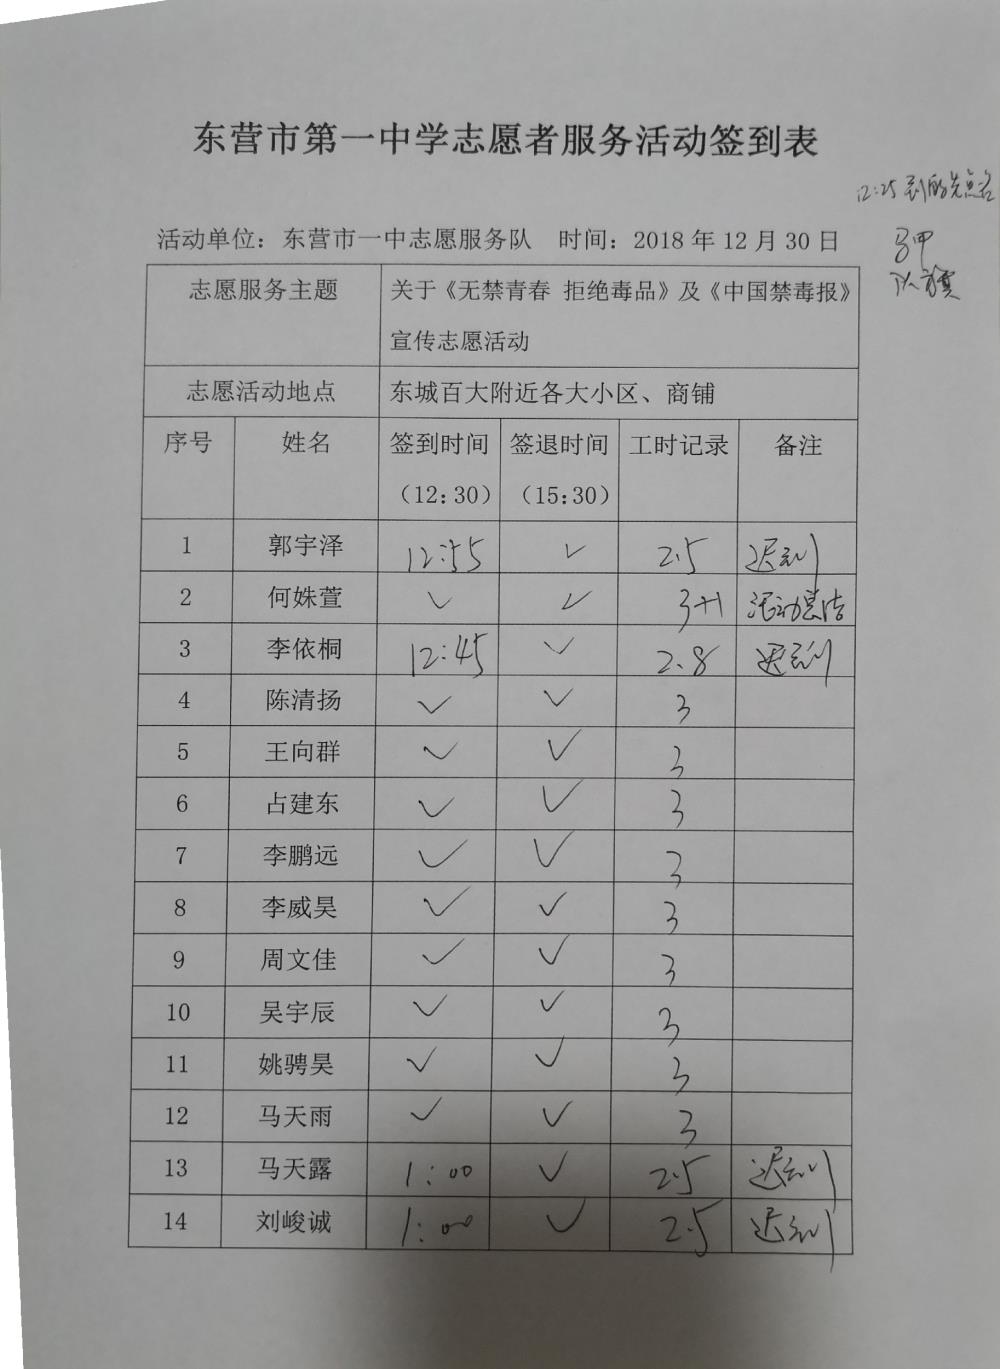 东营市第一中学志愿者服务活动签到表
12:25到的先点名
马甲
队旗
活动单位：东营市一中志愿服务队 时间：2018年12月30日
志愿服务主题 关于《无禁青春 拒绝毒品》及《中国禁毒报》
宣传志愿活动
志愿活动地点 东城百大附近各大小区、商铺
序号 姓名 签到时间 签退时间 工时记录 备注
（12:30） （15:30）
1 郭宇泽 12:55 ✓ 2.5 迟到
2 何姝萱 ✓ ✓ 3+1 活动总结
3 李依桐 12:45 ✓ 2.8 迟到
4 陈清扬 ✓ ✓ 3
5 王向群 ✓ ✓ 3
6 占建东 ✓ ✓ 3
7 李鹏远 ✓ ✓ 3
8 李威昊 ✓ ✓ 3
9 周文佳 ✓ ✓ 3
10 吴宇辰 ✓ ✓ 3
11 姚骋昊 ✓ ✓ 3
12 马天雨 ✓ ✓ 3
13 马天露 1:00 ✓ 2.5 迟到
14 刘峻诚 1:00 ✓ 2.5 迟到